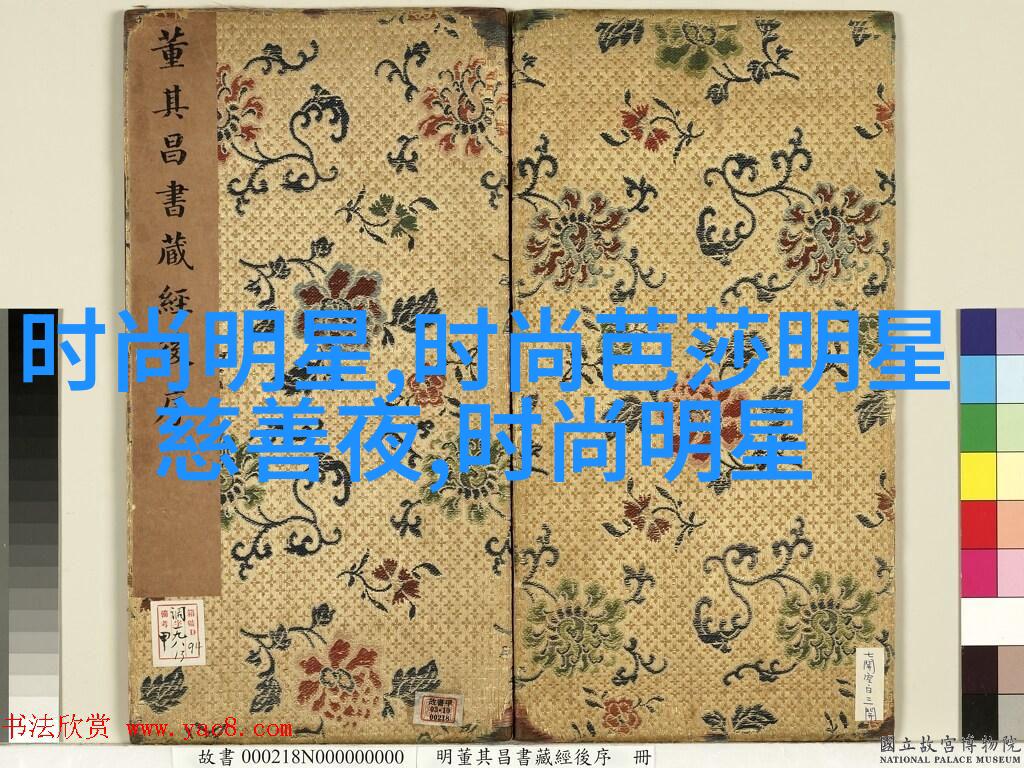 董其昌書藏經後序
时尚明星,时尚芭莎明星
慈善夜,时尚明星
箱號D
備考
调一九八
13
94
甲
故書甲
03*10
00218
七開空白三開
书法欣赏 www.yac8.com
故書 000218N000000000
明董其昌書藏經後序 冊
國立故宮博物院
NATIONAL PALACE MUSEUM